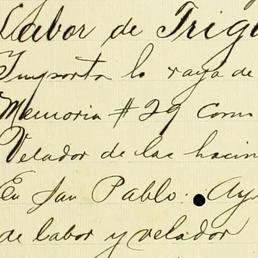 Labor de Trig
Importa la raya de
Memoria # 29 Com
Velador de las hacin
En San Pablo. Ay
de labor y velador